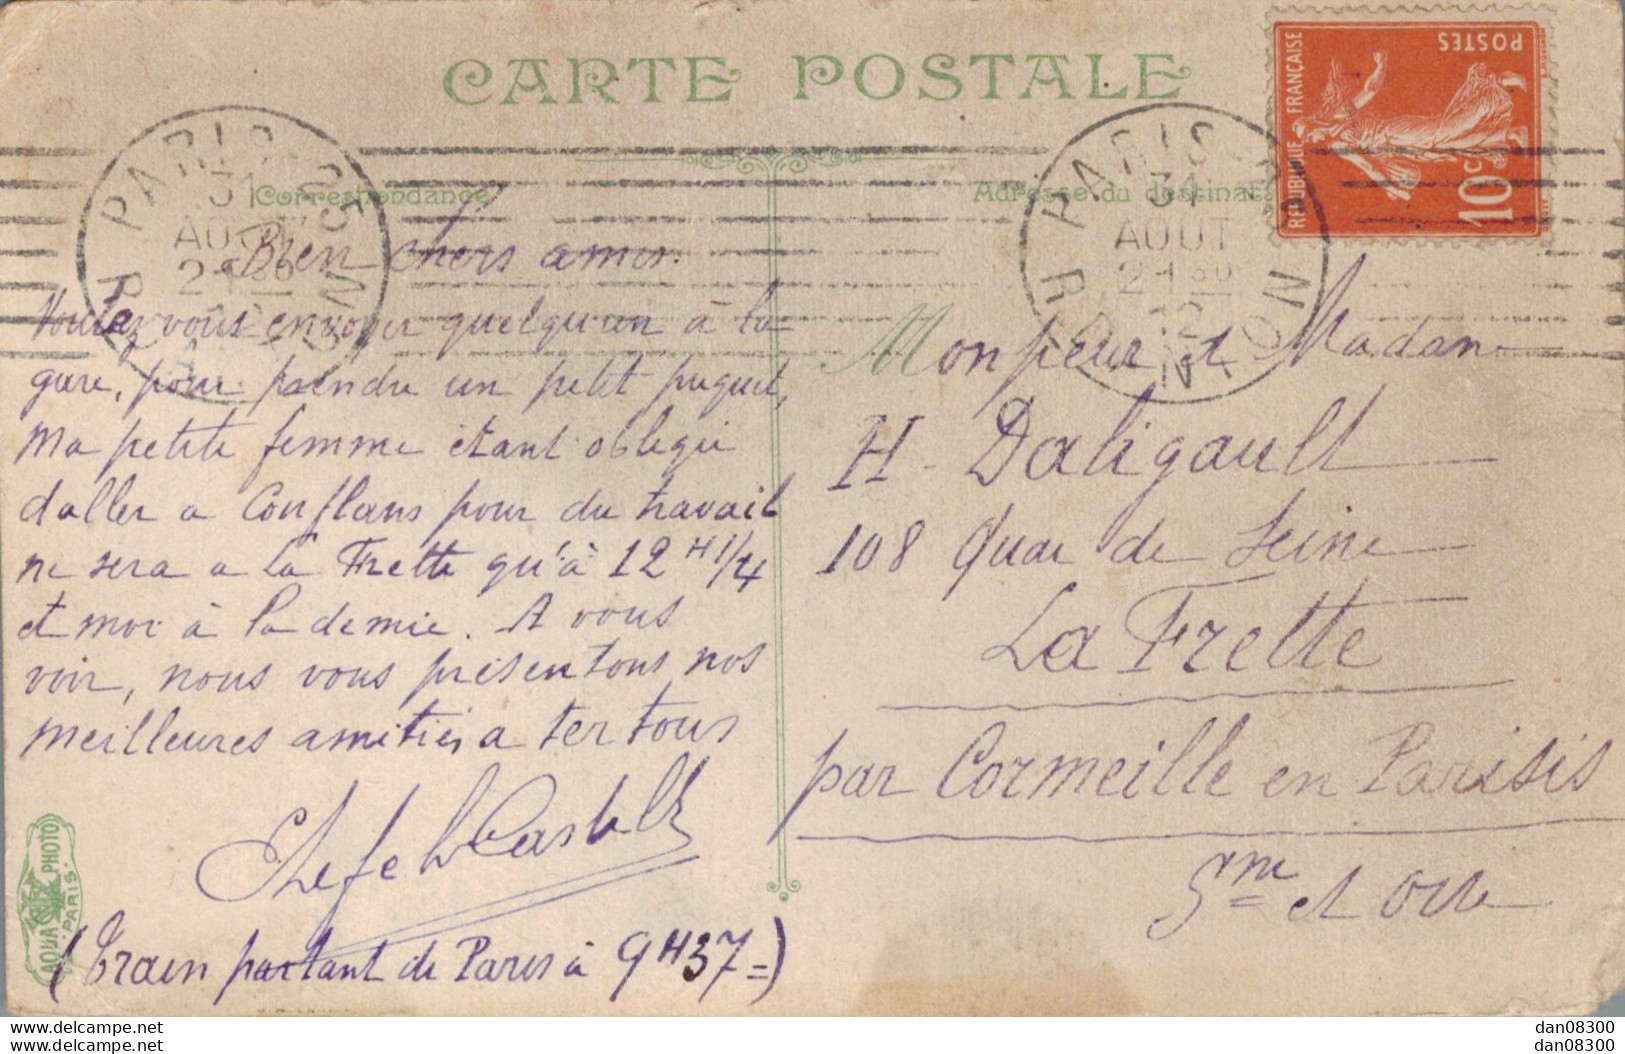 CARTE POSTALE
Correspondance
Adresse du destinat
RÉPUBLIQUE FRANÇAISE
POSTES
10c
PARIS
31
AOUT
12
PARIS
31
AOUT
12
Bien chers amis.
Voulez vous envoyer quelqu'un à la
gare, pour prendre un petit paquet,
Ma petite femme étant obligée
d'aller a Conflans pour du travail
ne sera a La Frette qu'à 12 H 1/4
et moi à la demie. A vous
voir, nous vous présentons nos
meilleures amitiés a ter tous
(Train partant de Paris à 9H37=)
Monsieur et Madame
H. Daligault
108 Quai de Seine
La Frette
par Cormeille en Parisis
Sne et Oise
AQUA PHOTO
PARIS
www.delcampe.net
my car
dan08300
dan08300